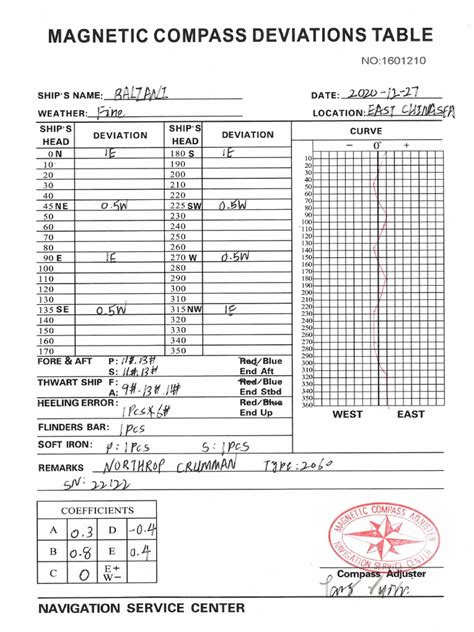 MAGNETIC COMPASS DEVIATIONS TABLE
NO:1601210
SHIP'S NAME: BALTANI DATE: 2020-12-27
WEATHER: Fine LOCATION: EAST CHINASEA
SHIP'S HEAD DEVIATION SHIP'S HEAD DEVIATION CURVE
− 0° +
0 N 1E 180 S 1E
10 190
20 200
30 210
40 220
45 NE 0.5W 225 SW 0.5W
50 230
60 240
70 250
80 260
90 E 1E 270 W 0.5W
100 280
110 290
120 300
130 310
135 SE 0.5W 315 NW 1E
140 320
150 330
160 340
170 350
10
20
30
40
50
60
70
80
90
100
110
120
130
140
150
160
170
180
190
200
210
220
230
240
250
260
270
280
290
300
310
320
330
340
350
360
WEST EAST
FORE & AFT P: 11#.13# Red/Blue
S: 11#.13# End Aft
THWART SHIP F: 9#.13# 14# Red/Blue
A: End Stbd
HEELING ERROR: Red/Blue
1PCS*6# End Up
FLINDERS BAR: 1PCS
SOFT IRON: P: 1PCS S: 1PCS
REMARKS NORTHROP CRUMMAN TYPE: 2060
SN: 22122
COEFFICIENTS
A 0.3 D -0.4
B 0.8 E 0.4
C 0 E+ W−
MAGNETIC COMPASS ADJUSTER
NAVIGATION SERVICE CENTER
Compass Adjuster
NAVIGATION SERVICE CENTER